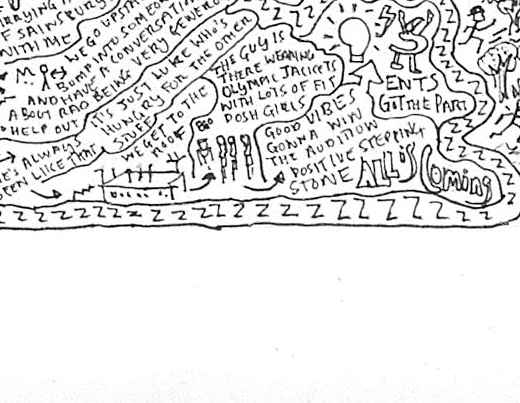 F SAINSBURY
WITH ME
WE GO UPSTA
BUMP INTO SOMEON
AND HAVE A CONVERSATION
ABOUT RAO BEING VERY GENERO
HELP OUT
IT'S JUST LUKE WHO'S
HUNGRY FOR THE OTHER
STUFF
ALWAYS
BEEN LIKE THAT
WE GET TO THE
THE GUY IS
THERE WEARING
OLYMPIC JACKETS
WITH LOTS OF FIT
POSH GIRLS
GOOD VIBES
GONNA WIN
THE AUDITION
POSITIVE STEPPING
STONE
ENTS
GOT THE PART
ALL IS
COMING
Z Z Z Z Z Z Z Z Z Z Z Z Z Z Z Z Z Z Z